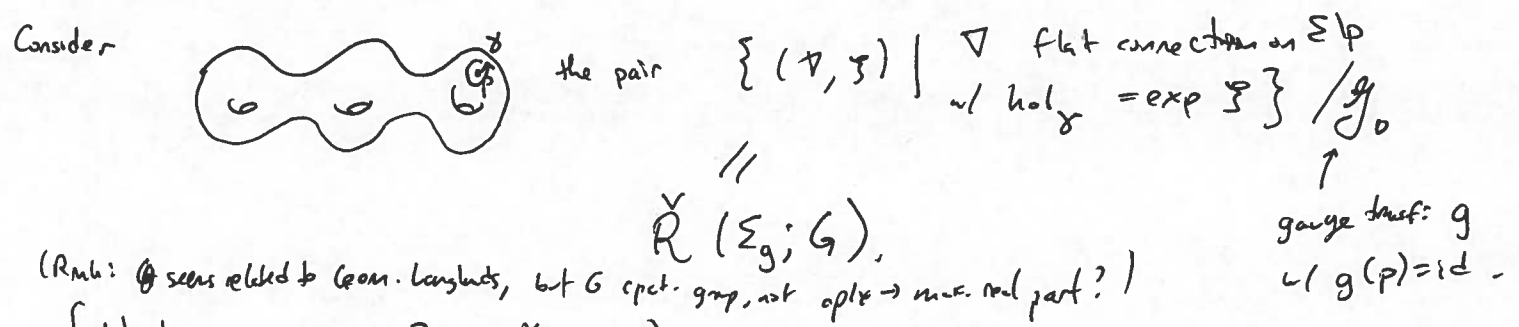 Consider γ p the pair { (∇, ξ) | ∇ flat connection on Σ\p
w/ hol_γ = exp ξ } / 𝒢₀
//
Ř (Σ_g; G).
↑
gauge transf: g
w/ g(p) = id.
(Rmk: seems related to Geom. Langlands, but G cpct. grp, not cplx → max. real part?)